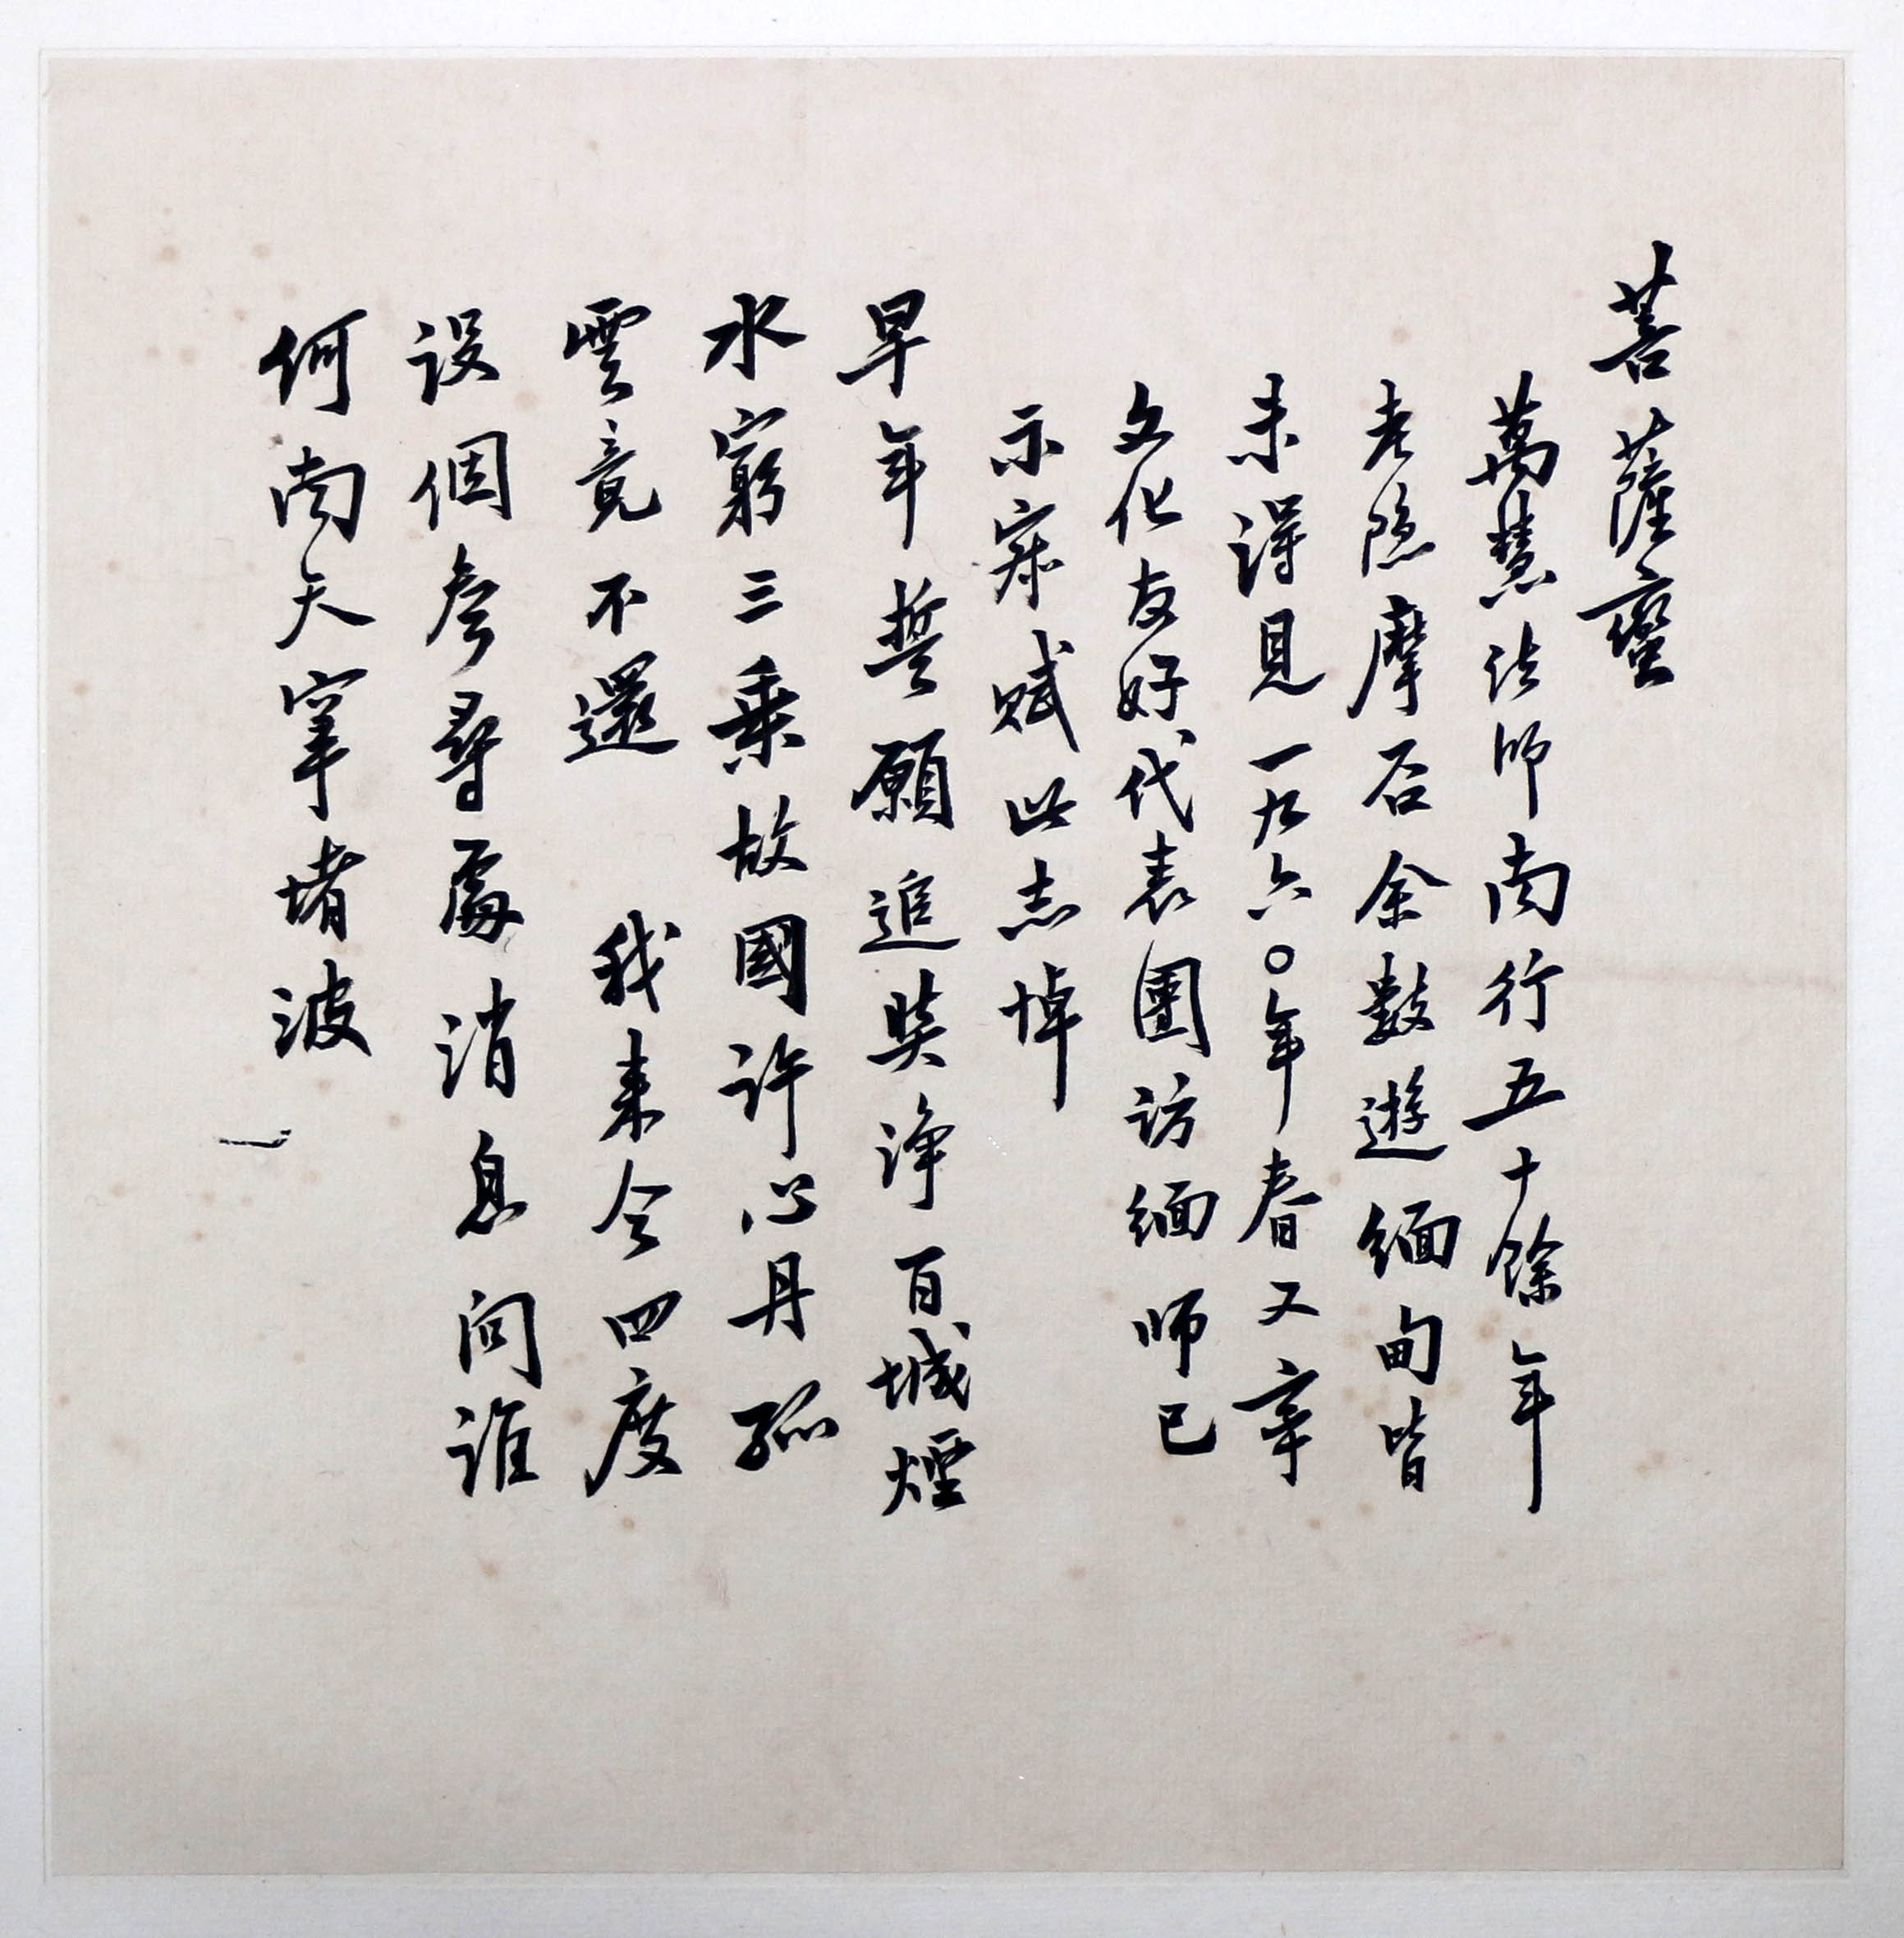 菩薩蠻
萬慧法師南行五十餘年
老隐摩否余數遊缅甸皆
未得見一九六〇年春又率
文化友好代表團訪缅師已
示寂赋此志悼
早年誓願追奘淨百城煙
水窮三乘故國許心丹孤
雲竟不還 我来今四度
没個參尋處消息问誰
何南天窣堵波